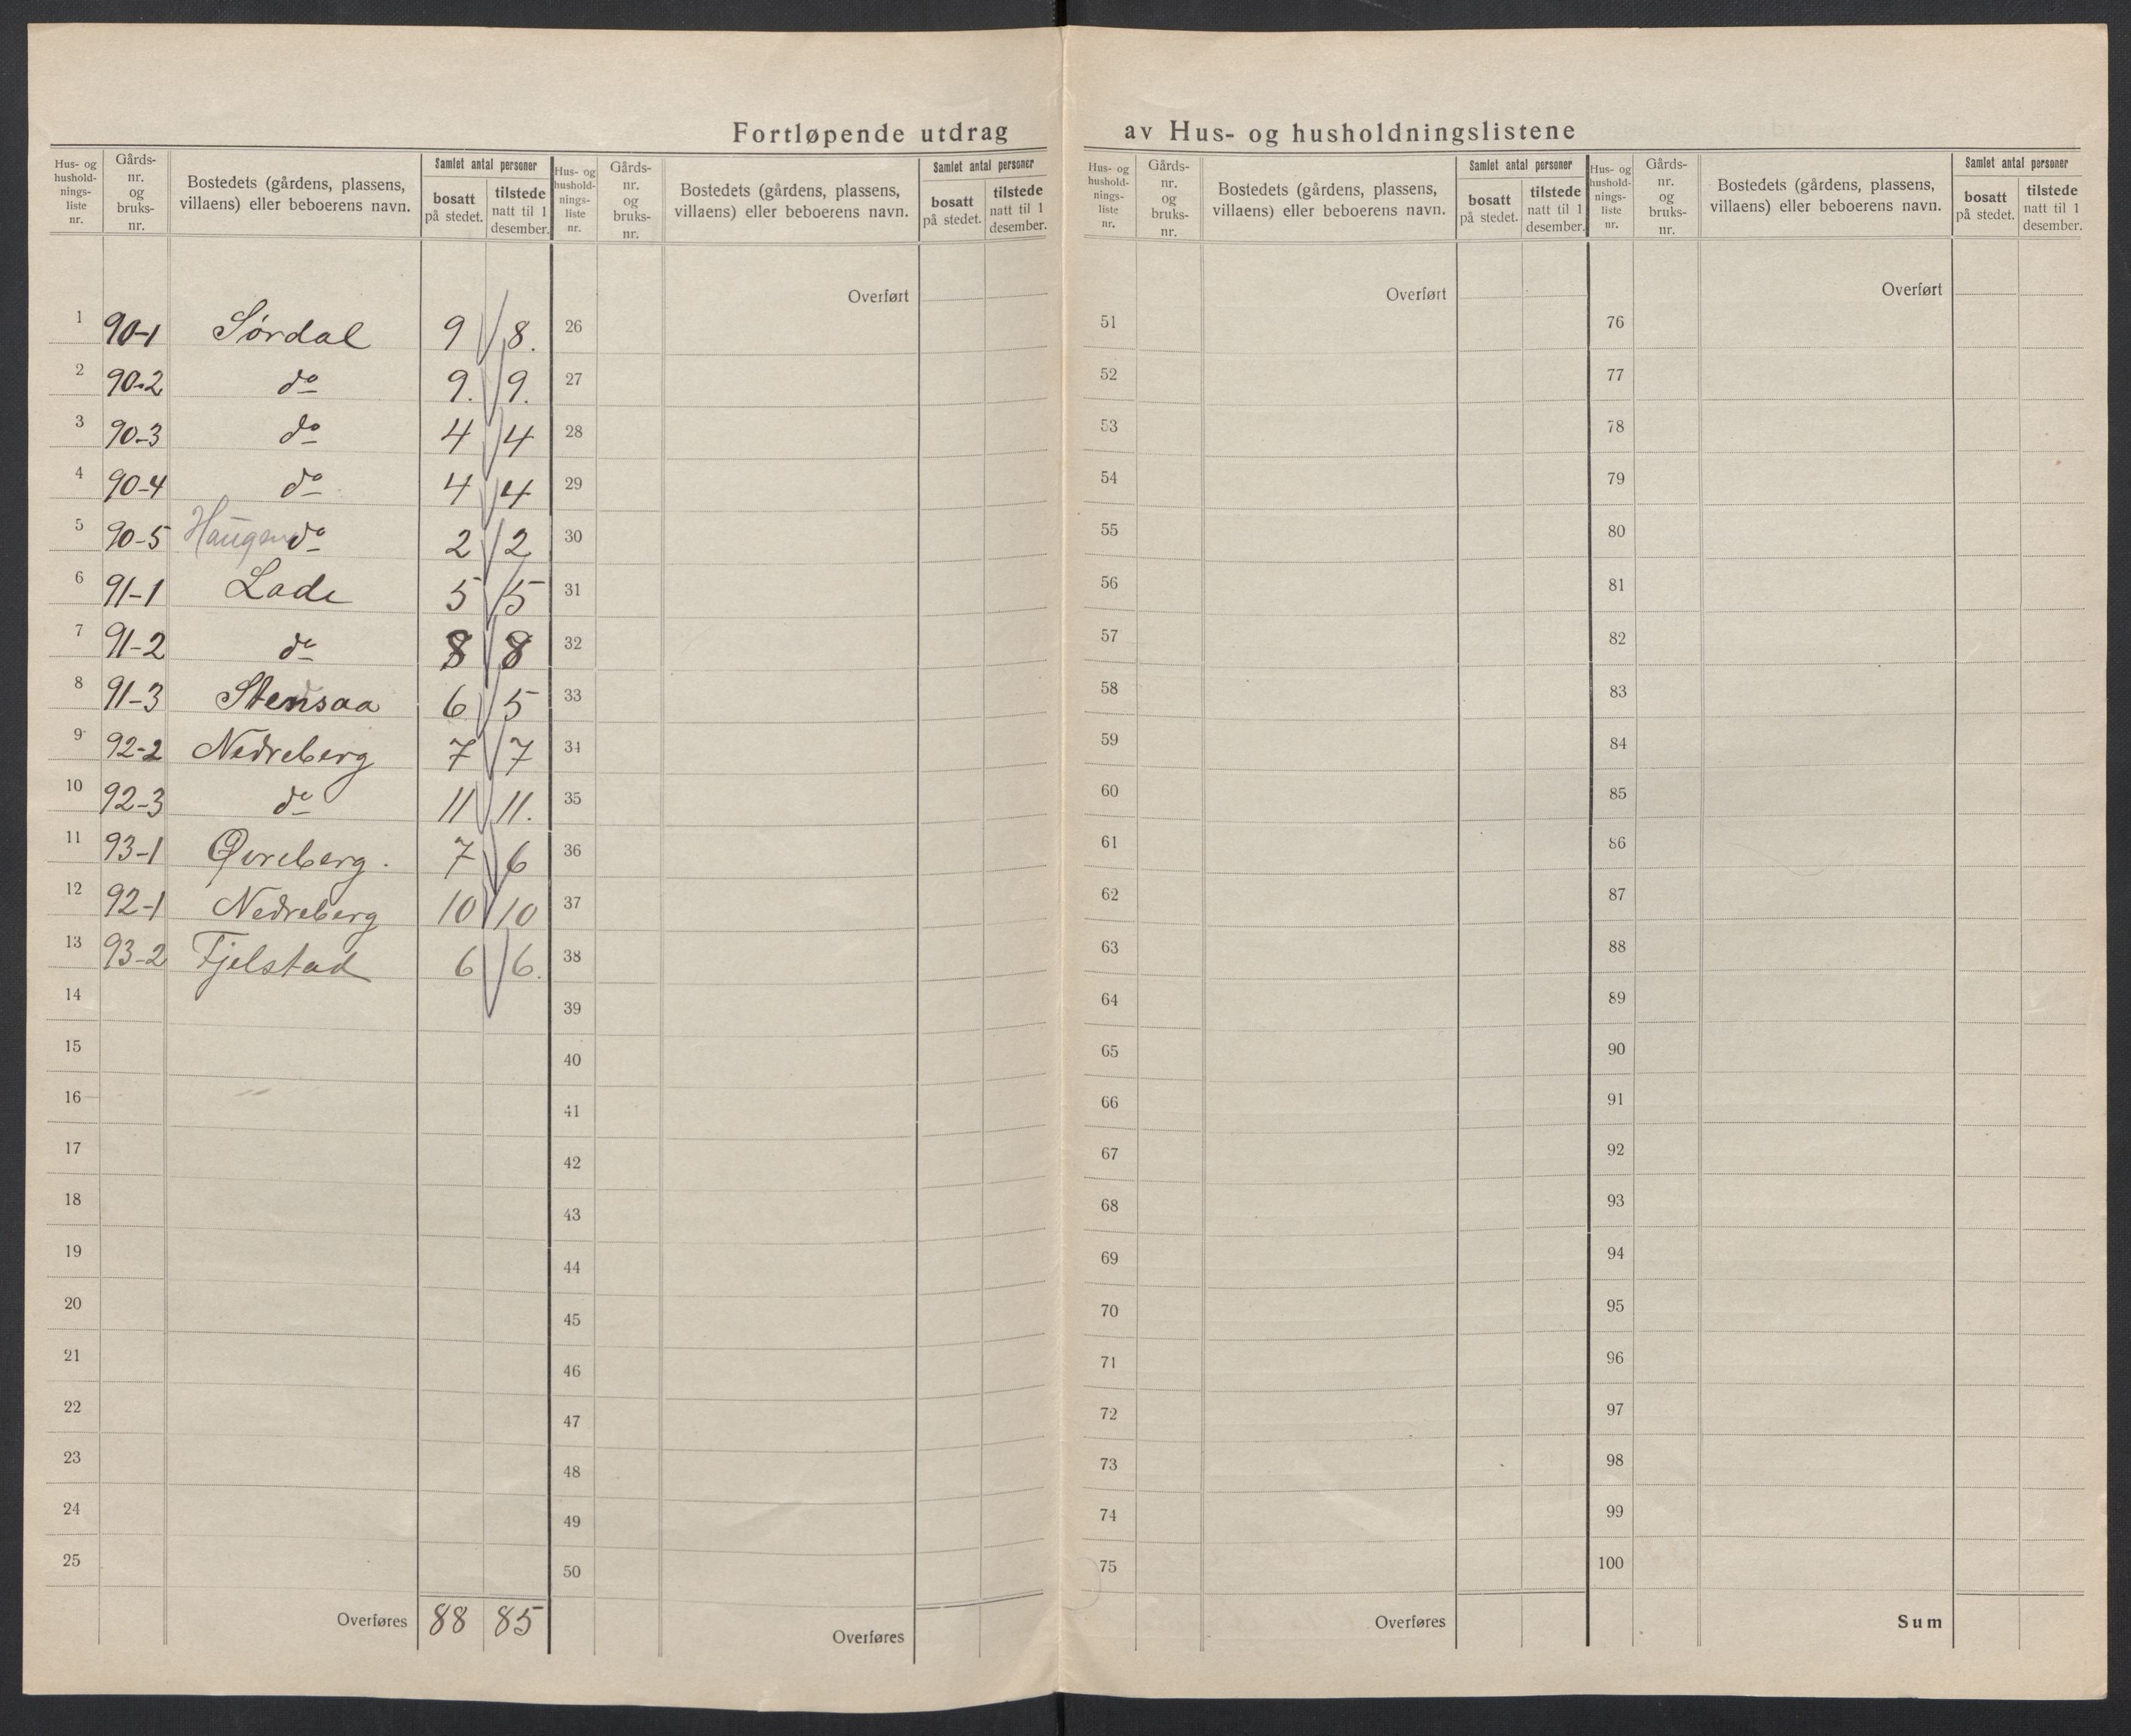 Fortløpende utdrag av Hus- og husholdningslistene
Hus- og husholdningsliste nr. | Gårds- nr. og bruks- nr. | Bostedets (gårdens, plassens, villaens) eller beboerens navn. | Samlet antal personer | bosatt på stedet. | tilstede natt til 1 desember.
1 90-1 Sørdal 9 8.
2 90-2 do 9. 9.
3 90-3 do 4 4
4 90-4 do 4 4
5 90-5 Haugen do 2 2
6 91-1 Lade 5 5
7 91-2 do 8 8
8 91-3 Stensaa 6 5
9 92-2 Nedreberg 7 7
10 92-3 do 11 11.
11 93-1 Øvreberg. 7 6
12 92-1 Nedreberg 10 10
13 93-2 Fjelstad 6 6.
14
15
16
17
18
19
20
21
22
23
24
25
Overføres 88 85
Hus- og husholdningsliste nr. | Gårds- nr. og bruks- nr. | Bostedets (gårdens, plassens, villaens) eller beboerens navn. | Samlet antal personer | bosatt på stedet. | tilstede natt til 1 desember.
Overført
26
27
28
29
30
31
32
33
34
35
36
37
38
39
40
41
42
43
44
45
46
47
48
49
50
Overføres
Hus- og husholdningsliste nr. | Gårds- nr. og bruks- nr. | Bostedets (gårdens, plassens, villaens) eller beboerens navn. | Samlet antal personer | bosatt på stedet. | tilstede natt til 1 desember.
Overført
51
52
53
54
55
56
57
58
59
60
61
62
63
64
65
66
67
68
69
70
71
72
73
74
75
Overføres
Hus- og husholdningsliste nr. | Gårds- nr. og bruks- nr. | Bostedets (gårdens, plassens, villaens) eller beboerens navn. | Samlet antal personer | bosatt på stedet. | tilstede natt til 1 desember.
Overført
76
77
78
79
80
81
82
83
84
85
86
87
88
89
90
91
92
93
94
95
96
97
98
99
100
Sum